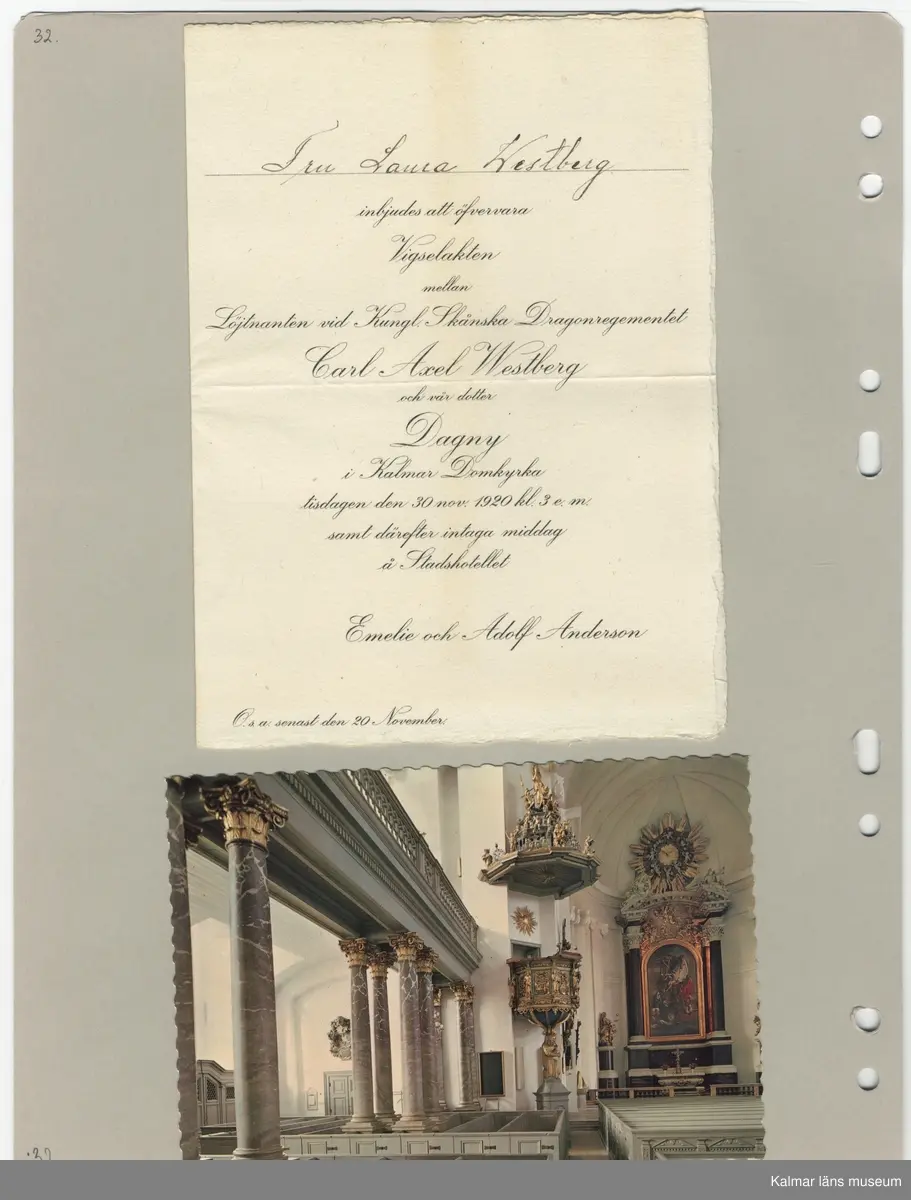 32.
Fru Laura Westberg
inbjudes att öfvervara
Vigselakten
mellan
Löjtnanten vid Kungl. Skånska Dragonregementet
Carl Axel Westberg
och vår dotter
Dagny
i Kalmar Domkyrka
tisdagen den 30 nov. 1920 kl. 3 e. m.
samt därefter intaga middag
å Stadshotellet
Emelie och Adolf Anderson
O. s. a. senast den 20 November.
Kalmar läns museum